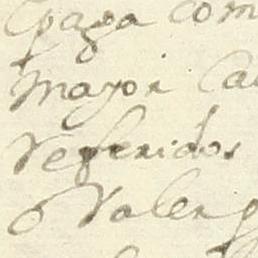 paga com
mayor Ca
Referidos
o Valer